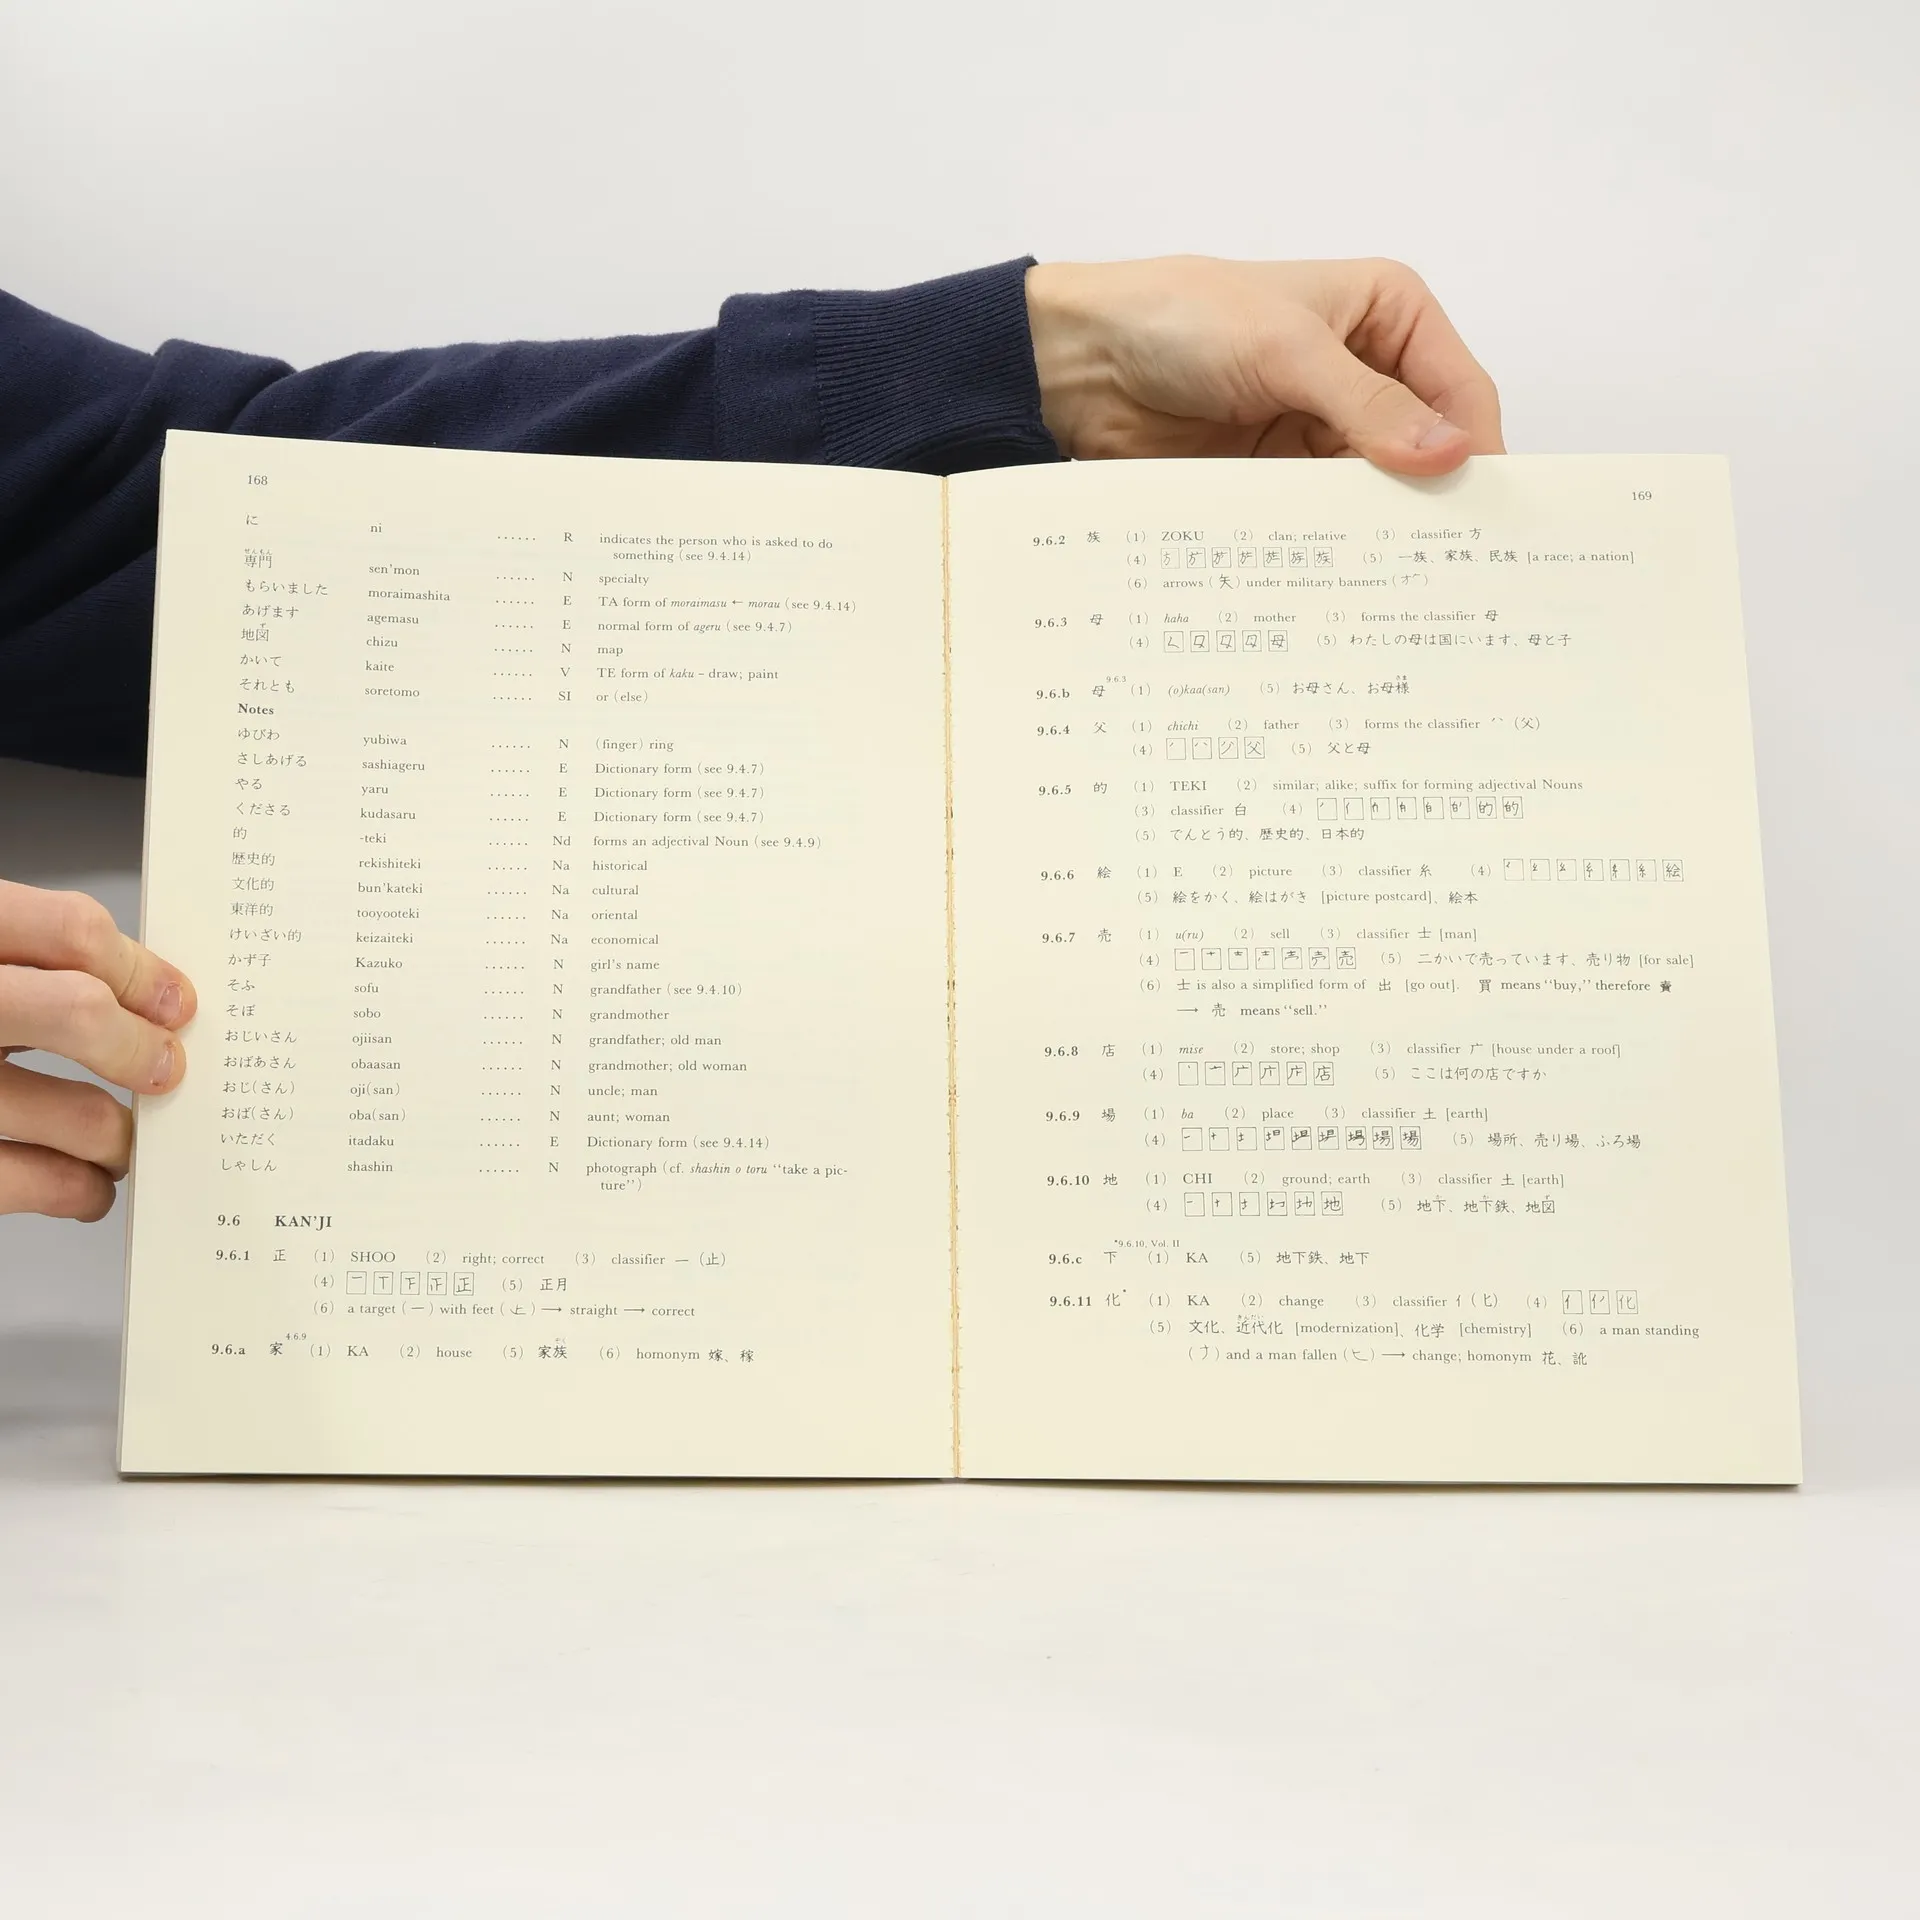 168
に ni ...... R indicates the person who is asked to do
something (see 9.4.14)
せんもん
専門 sen'mon ...... N specialty
もらいました moraimashita ...... E TA form of moraimasu ← morau (see 9.4.14)
あげます agemasu ...... E normal form of ageru (see 9.4.7)
ず
地図 chizu ...... N map
かいて kaite ...... V TE form of kaku – draw; paint
それとも soretomo ...... SI or (else)
Notes
ゆびわ yubiwa ...... N (finger) ring
さしあげる sashiageru ...... E Dictionary form (see 9.4.7)
やる yaru ...... E Dictionary form (see 9.4.7)
くださる kudasaru ...... E Dictionary form (see 9.4.7)
的 -teki ...... Nd forms an adjectival Noun (see 9.4.9)
歴史的 rekishiteki ...... Na historical
文化的 bun'kateki ...... Na cultural
東洋的 tooyooteki ...... Na oriental
けいざい的 keizaiteki ...... Na economical
かず子 Kazuko ...... N girl's name
そふ sofu ...... N grandfather (see 9.4.10)
そぼ sobo ...... N grandmother
おじいさん ojiisan ...... N grandfather; old man
おばあさん obaasan ...... N grandmother; old woman
おじ(さん) oji(san) ...... N uncle; man
おば(さん) oba(san) ...... N aunt; woman
いただく itadaku ...... E Dictionary form (see 9.4.14)
しゃしん shashin ...... N photograph (cf. shashin o toru "take a pic-
ture")
9.6 KAN'JI
9.6.1 正 (1) SHOO (2) right; correct (3) classifier 一 (止)
(4) 正 (5) 正月
(6) a target (一) with feet (止) → straight → correct
9.6.a 家 4.6.9 (1) KA (2) house (5) 家族 (6) homonym 嫁、稼
169
9.6.2 族 (1) ZOKU (2) clan; relative (3) classifier 方
(4) 族 (5) 一族、家族、民族 [a race; a nation]
(6) arrows (矢) under military banners
9.6.3 母 (1) haha (2) mother (3) forms the classifier 母
(4) 母 (5) わたしの母は国にいます、母と子
9.6.b 母 9.6.3 (1) (o)kaa(san) (5) お母さん、お母様
9.6.4 父 (1) chichi (2) father (3) forms the classifier (父)
(4) 父 (5) 父と母
9.6.5 的 (1) TEKI (2) similar; alike; suffix for forming adjectival Nouns
(3) classifier 白 (4) 的
(5) でんとう的、歴史的、日本的
9.6.6 絵 (1) E (2) picture (3) classifier 糸 (4) 絵
(5) 絵をかく、絵はがき [picture postcard]、絵本
9.6.7 売 (1) u(ru) (2) sell (3) classifier 士 [man]
(4) 売 (5) 二かいで売っています、売り物 [for sale]
(6) 士 is also a simplified form of 出 [go out]. 買 means "buy," therefore 賣
→ 売 means "sell."
9.6.8 店 (1) mise (2) store; shop (3) classifier 广 [house under a roof]
(4) 店 (5) ここは何の店ですか
9.6.9 場 (1) ba (2) place (3) classifier 土 [earth]
(4) 場 (5) 場所、売り場、ふろ場
9.6.10 地 (1) CHI (2) ground; earth (3) classifier 土 [earth]
(4) 地 (5) 地下、地下鉄、地図
9.6.c 下 *9.6.10, Vol. II (1) KA (5) 地下鉄、地下
9.6.11 化* (1) KA (2) change (3) classifier 亻(匕) (4) 化
(5) 文化、近代化 [modernization]、化学 [chemistry] (6) a man standing
and a man fallen (匕) → change; homonym 花、訛